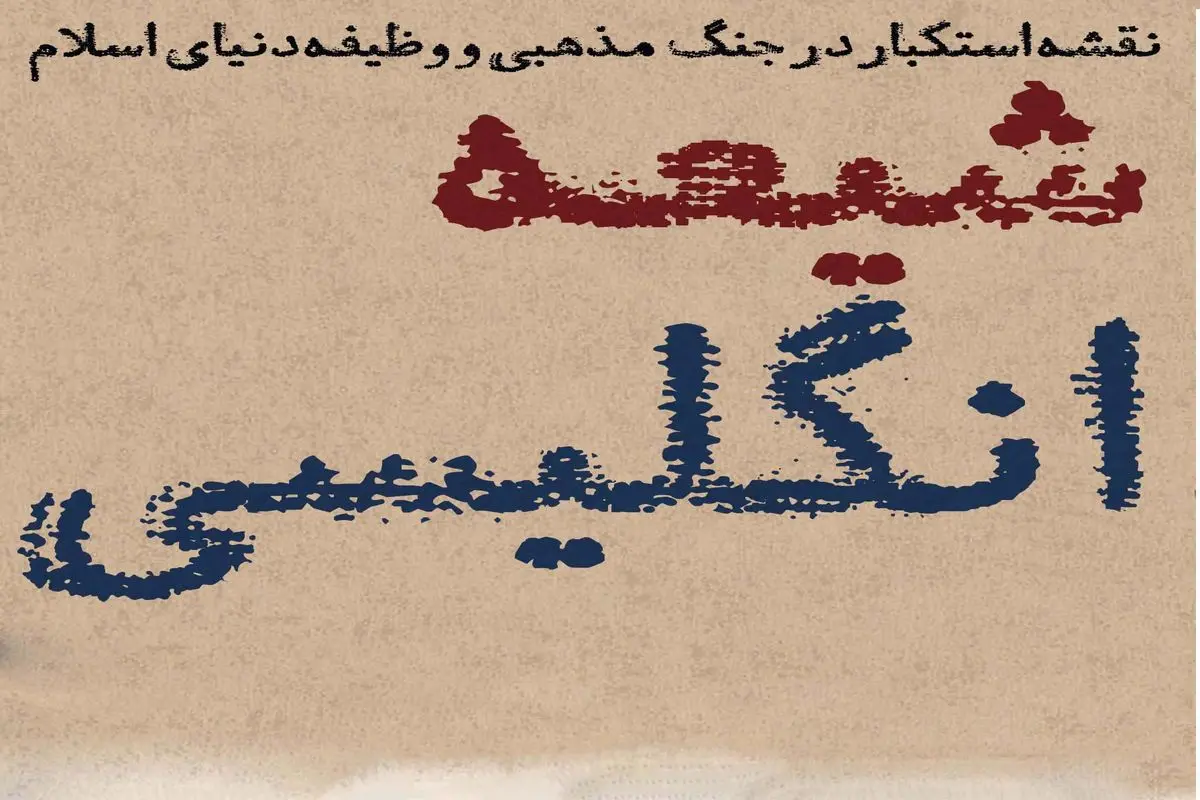 نقشه استکبار در جنگ مذهبی و وظیفه دنیای اسلام
شیعه
انگلیسی